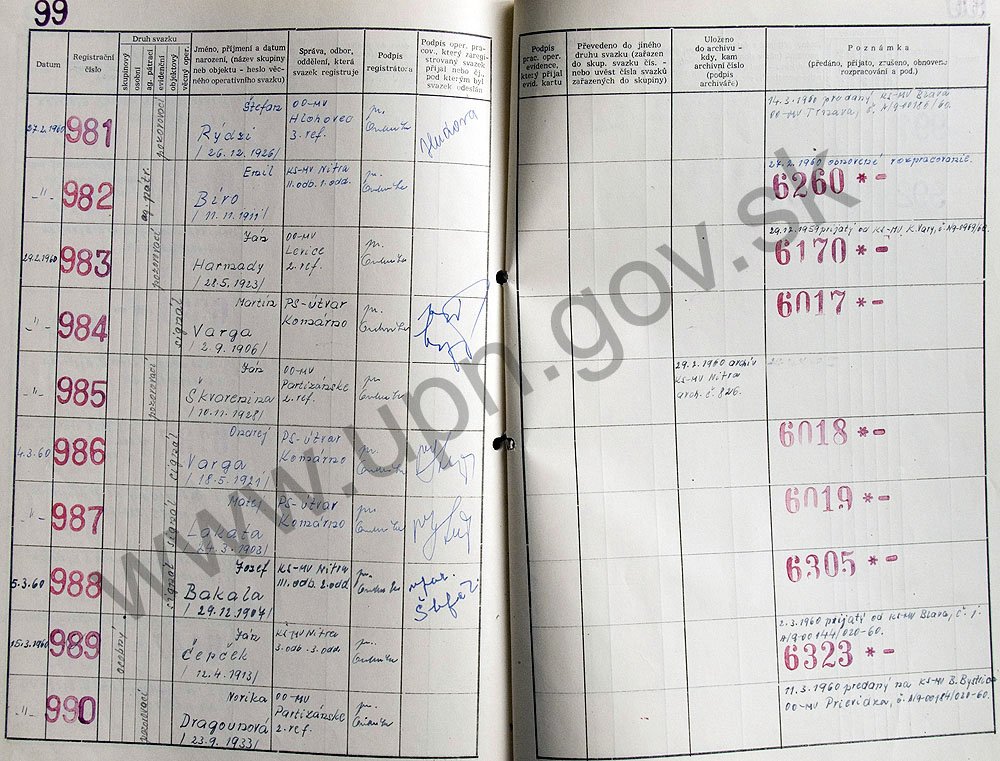 99
Datum
Registrační číslo
Druh svazku
skupinový
osobní
ag. pátrací
evidenční
objektový
věcný oper.
Jméno, příjmení a datum narození, (název skupiny neb objektu - heslo věcného operativního svazku)
Správa, odbor, oddělení, která svazek registruje
Podpis registrátora
Podpis oper. prac., který zaregistrovaný svazek přijal nebo čj., pod kterým byl svazek odeslán
Podpis prac. oper. evidence, který přijal evid. kartu
Převedeno do jiného druhu svazku (zařazen do skup. svazku čís. - nebo uvést čísla svazků zařazených do skupiny)
Uloženo do archivu - kdy, kam archivní číslo (podpis archiváře)
Poznámka
(předáno, přijato, zrušeno, obnoveno rozpracování a pod.)
27.2.1960 981 pozorovací Štefan
Rýdzi
/26.12.1926/
OO-MV
Hlohovec
3. ref.
Hudora
14.3.1960 predaný KS-MV Brava
OO-MV Trnava, č.
-"- 982 ag. pátr. Emil
Bíro
/11.11.1911/
KS-MV Nitra
II. odb. 1. odd.
27.2.1960 obnovené rozpracovanie.
6260 *-
29.2.1960 983 pozorovací Ján
Harmady
/28.5.1923/
OO-MV
Levice
2. ref.
29.12.1959 prijatý od KS-MV K. Vary,
6170 *-
-"- 984 signál Martin
Varga
/2.9.1906/
PS-útvar
Komárno
6017 *-
-"- 985 pozorovací Ján
Škvarenina
/10.11.1928/
OO-MV
Partizánske
2. ref.
29.2.1960 archív
KS-MV Nitra
arch. č. 826.
4.3.60 986 signál Ondrej
Varga
/18.5.1921/
PS-útvar
Komárno
6018 *-
-"- 987 signál Matej
Lakata
PS-útvar
Komárno
6019 *-
5.3.60 988 signál Jozef
Bakala
/29.12.1907/
KS-MV Nitra
III. odb. 2. odd.
6305 *-
15.3.1960 989 osobný Ján
Čepček
/12.4.1913/
KS-MV Nitra
3. odb. 3. odd.
2.3.1960 prijatý od KS-MV Brava, č. j.
A/9-00144/020-60.
6323 *-
-"- 990 pozorovací Norika
Dragounová
/23.9.1933/
OO-MV
Partizánske
2. ref.
11.3.1960 predaný na KS-MV B. Bystrica
OO-MV Prievidza, č. A/9-00184/020-60.
www.upn.gov.sk